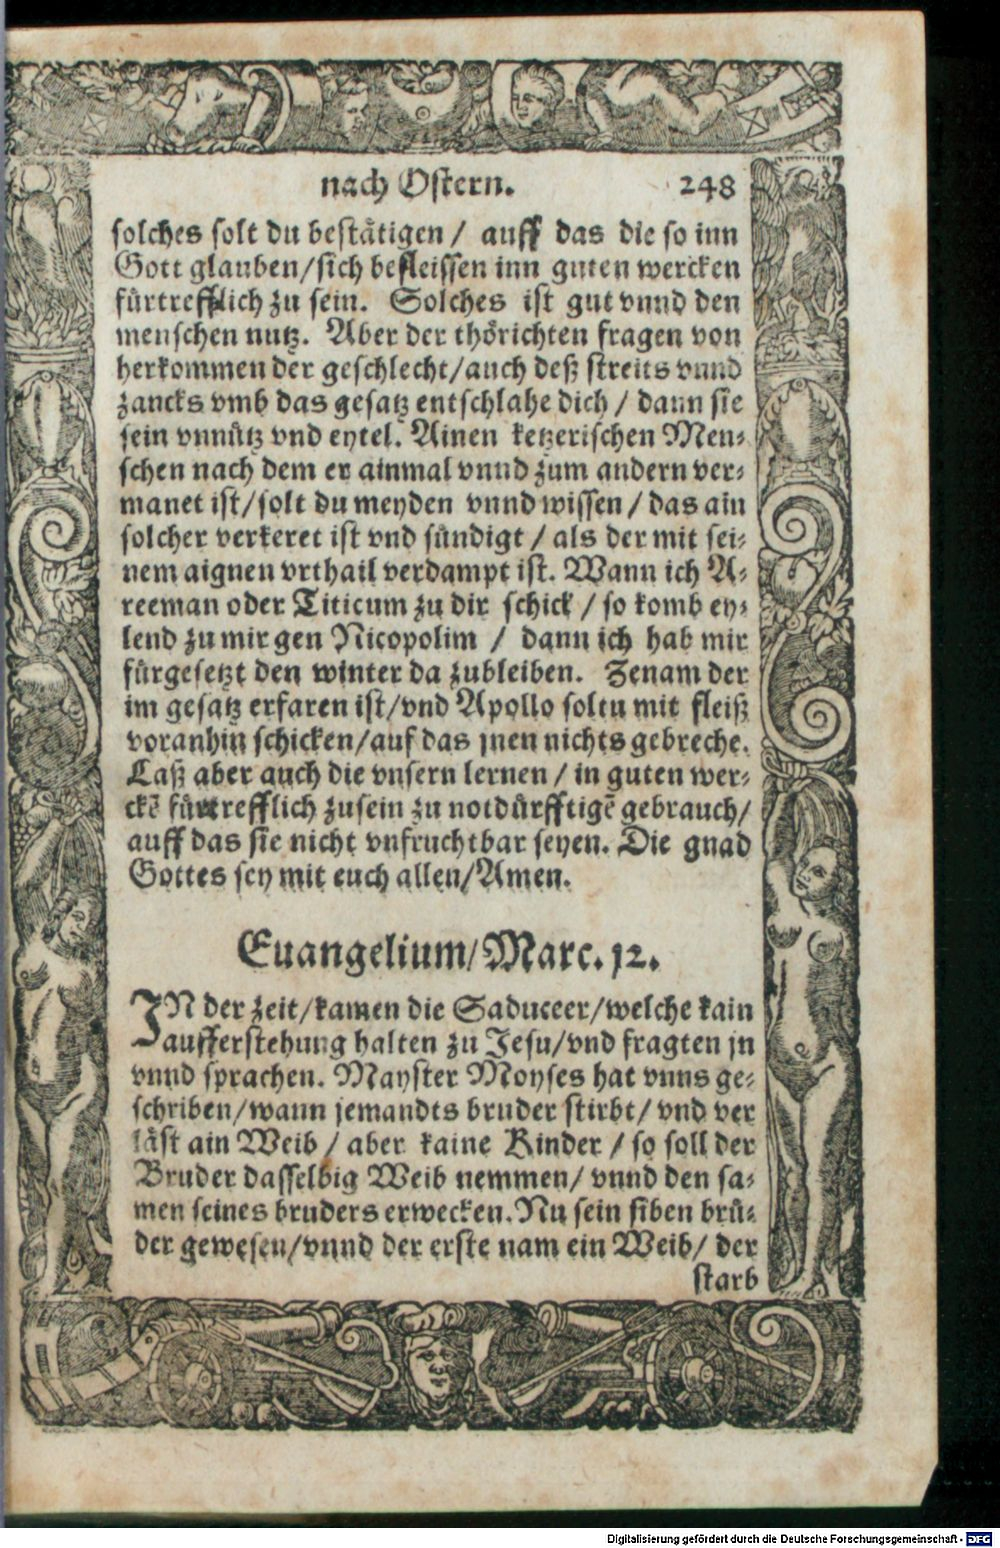 nach Ostern. 248
solches solt du bestätigen / auff das die so inn
Gott glauben/sich befleissen inn guten wercken
fürtrefflich zu sein. Solches ist gut vnnd den
menschen nutz. Aber der thörichten fragen von
herkommen der geschlecht/auch deß streits vnnd
zancks vmb das gesatz entschlahe dich / dann sie
sein vnnütz vnd eytel. Ainen ketzerischen Men⸗
schen nach dem er ainmal vnnd zum andern ver⸗
manet ist/solt du meyden vnnd wissen / das ain
solcher verkeret ist vnd sündigt / als der mit sei⸗
nem aignen vrthail verdampt ist. Wann ich A⸗
reeman oder Titicum zu dir schick / so komb ey⸗
lend zu mir gen Nicopolim / dann ich hab mir
fürgesetzt den winter da zubleiben. Zenam der
im gesatz erfaren ist/vnd Apollo soltu mit fleiß
voranhin schicken/auf das jnen nichts gebreche.
Laß aber auch die vnsern lernen / in guten wer⸗
ckẽ fürtrefflich zusein zu notdürfftigẽ gebrauch/
auff das sie nicht vnfruchtbar seyen. Die gnad
Gottes sey mit euch allen/Amen.
Euangelium/Marc. 12.
IN der zeit/kamen die Saduceer/welche kain
aufferstehung halten zu Jesu/vnd fragten jn
vnnd sprachen. Mayster Moyses hat vnns ge⸗
schriben/wann jemandts bruder stirbt/ vnd ver
läst ain Weib / aber kaine Kinder / so soll der
Bruder dasselbig Weib nemmen/ vnnd den sa⸗
men seines bruders erwecken. Nu sein siben brü⸗
der gewesen/vnnd der erste nam ein Weib/ der
starb
Digitalisierung gefördert durch die Deutsche Forschungsgemeinschaft - DFG